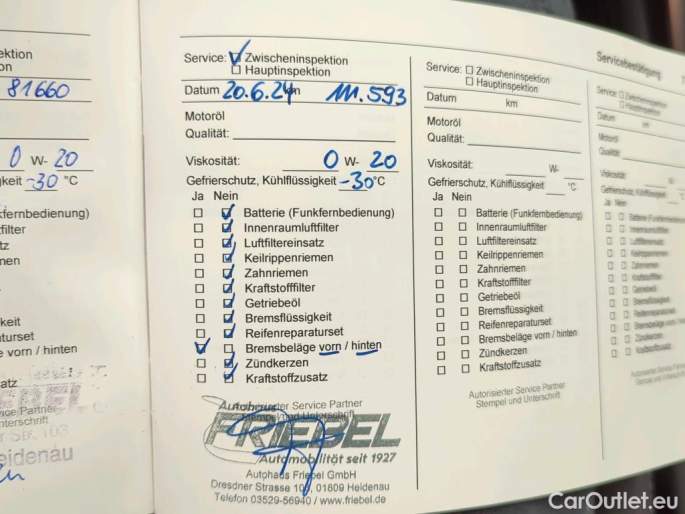 ektion
on
81660
0 W- 20
keit -30 °C
kfernbedienung)
filter
tz
men
keit
urset
e vorn / hinten
satz
vice Partner
nterschrift
Str. 103
eidenau
Service: ☑ Zwischeninspektion
☐ Hauptinspektion
Datum 20.6.24 km 111.593
Motoröl
Qualität:
Viskosität: 0 W- 20
Gefrierschutz, Kühlflüssigkeit -30°C
Ja Nein
☐ ☑ Batterie (Funkfernbedienung)
☐ ☑ Innenraumluftfilter
☐ ☑ Luftfiltereinsatz
☐ ☑ Keilrippenriemen
☐ ☑ Zahnriemen
☐ ☑ Kraftstofffilter
☐ ☑ Getriebeöl
☐ ☑ Bremsflüssigkeit
☐ ☑ Reifenreparaturset
☑ ☐ Bremsbeläge vorn / hinten
☐ ☑ Zündkerzen
☐ ☑ Kraftstoffzusatz
Autorisierter Service Partner
Stempel und Unterschrift
FRIEBEL
Automobilität seit 1927
Autohaus Friebel GmbH
Dresdner Strasse 103, 01809 Heidenau
Telefon 03529-56940 / www.friebel.de
Service: ☐ Zwischeninspektion
☐ Hauptinspektion
Datum km
Motoröl
Qualität:
Viskosität: W-
Gefrierschutz, Kühlflüssigkeit °C
Ja Nein
☐ ☐ Batterie (Funkfernbedienung)
☐ ☐ Innenraumluftfilter
☐ ☐ Luftfiltereinsatz
☐ ☐ Keilrippenriemen
☐ ☐ Zahnriemen
☐ ☐ Kraftstofffilter
☐ ☐ Getriebeöl
☐ ☐ Bremsflüssigkeit
☐ ☐ Reifenreparaturset
☐ ☐ Bremsbeläge vorn / hinten
☐ ☐ Zündkerzen
☐ ☐ Kraftstoffzusatz
Autorisierter Service Partner
Stempel und Unterschrift
Servicebestätigung
Service: ☐ Zwischeninspektion
☐ Hauptinspektion
Datum km
Motoröl
Qualität:
Viskosität:
Gefrierschutz, Kühlflüssigkeit
Ja Nein
☐ ☐ Batterie (Funkfernbedienung)
☐ ☐ Innenraumluftfilter
☐ ☐ Luftfiltereinsatz
☐ ☐ Keilrippenriemen
☐ ☐ Zahnriemen
☐ ☐ Kraftstofffilter
☐ ☐ Getriebeöl
☐ ☐ Bremsflüssigkeit
☐ ☐ Reifenreparaturset
☐ ☐ Bremsbeläge vorn / hinten
☐ ☐ Zündkerzen
☐ ☐ Kraftstoffzusatz
Autorisierter Service Partner
Stempel und Unterschrift
CarOutlet.eu